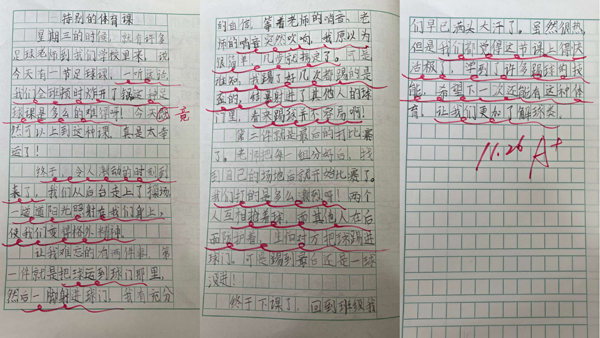 特别的体育课
星期三的时候,
足球老师到我们学校里来,说
今天有一节足球课,一听这话,
我们全班顿时炸开了锅,这
球课是多么的难得呀!今天
竟
然可以上到这种课,真是太幸
运了!
终于,令人激动的时刻到
来了,我们从后台走上了操场,
一道道阳光照射在我们身上,
使我们变得格外精神。
让我难忘的有两件事,第
一件就是把球运到球门那里,
然后一脚射进球门,我有充分
的自信,等着老师的哨音,老
师的哨音突然吹响,我原以为
很简单,几步就搞定了。可是
谁知,我踢了好几次都踢的是
歪的,
门里,看来踢球并不容易啊!
第二件就是最后的对比赛
了。老师把每一组分好后,找
到自己的场地后就开始比赛了。
我们打的是多么激烈呀!两个
人互相抢着球,而其他人在后
面防守着,生怕对方把球踢进
球门,可是踢到最后还是一球
没进!
终于下课了,回到班级我
们早已满头大汗了。虽然很热,
但是我们却觉得这节课上得快
活极了,学到了许多踢球的技
能,希望下一次还能有这种体
育,让我们更加了解球类。
11.26 A+